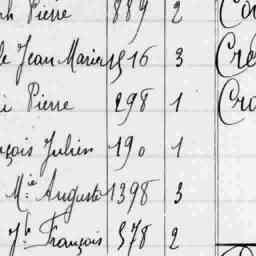 ph Pierre 889 2 Co
le Jean Marie 1516 3 Cré
i Pierre 298 1 Cro
nçois Julien 190 1
Mie Auguste 1398 3
Jh François 578 2